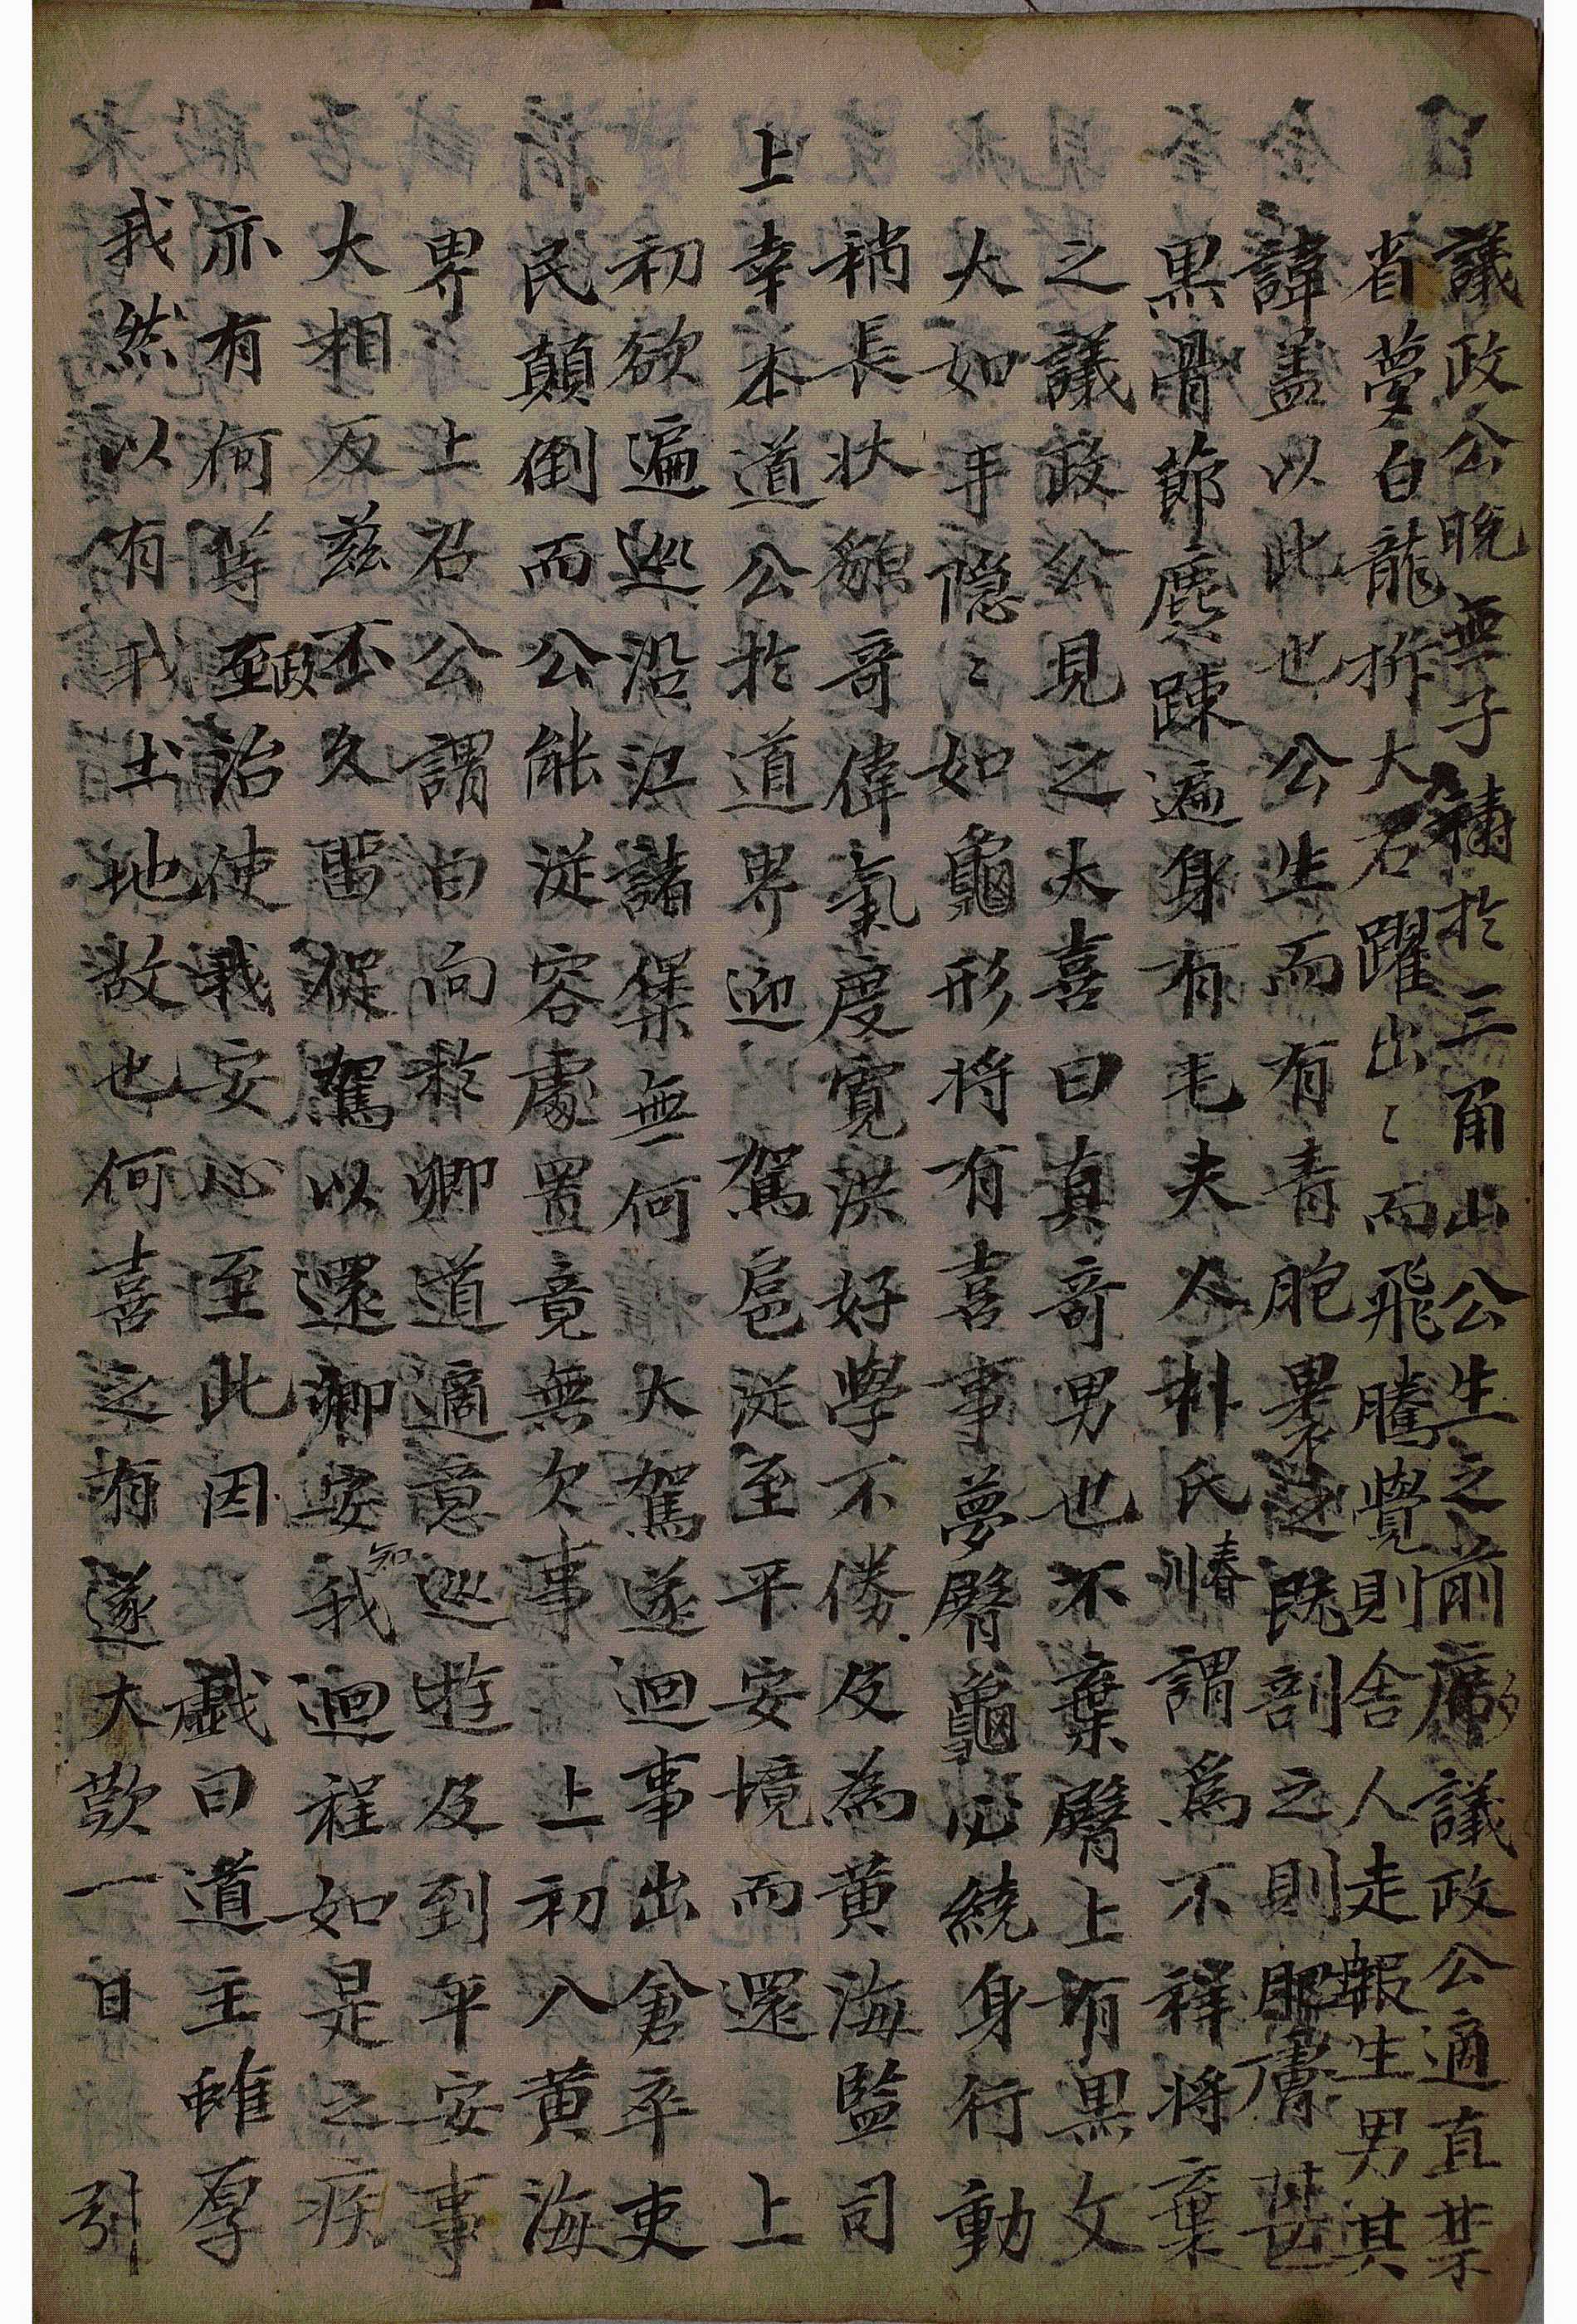 議政公晩無子禱於三角山公生之前席夕議政公適直禁
省夢白龍拆大君躍出〻而飛騰覺則舍人走報生男其
諱盖以此也公生而有青胞裹之既剖之則肥膚甚
黒骨節麁踈遍身有毛夫人朴氏惷謂爲不祥將棄
之議政公見之大喜曰真奇男也不棄臂上有黒文
大如手隠〻如龜形將有喜事夢臂龜必繞身行動
稍長状貌奇偉氣度寛洪好學不倦及為黄海監司
上幸本道公於道界迎 駕扈従至平安境而還 上
初欲遍巡沿江諸堡無何 大駕遂迴事出倉卒吏
民顛倒而公能従容處置竟無欠事 上初入黄海
界 上召公謂曰向於卿道適意巡遊及到平安事
大相反玆不久畱促駕以還卿安知我迴程如是之疾
亦有何等政治使我安心至此因 戱曰道主雖厚
我然以有我土地故也何喜之有遂大歡一日引